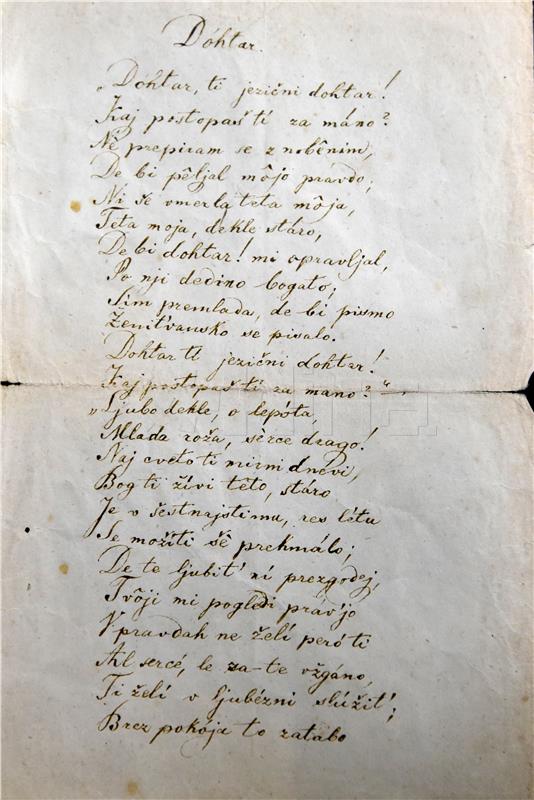 Dóhtar.
„Dohtar, ti jezični dohtar!
Kaj postopaš ti za máno?
Nê prepiram se z nobênim,
De bi pêljal môjo právdo;
Ni še vmerla teta môja,
Teta moja, dekle stáro,
De bi dohtar! mi opravljal,
Po nji dedino bogato;
Sim premlada, de bi pismo
Ženitvansko se pisalo.
Dohtar ti jezični dohtar!
Kaj postopaš ti za mano?"
„Ljubo dekle, o lepóta,
Mláda roža, serce drago!
Naj cveto ti mirni dnévi,
Bog ti živi têto, stáro
Je v šestnajstimu, res létu
Se možíti šê prehmálo;
De te ljubit' ni prezgodej,
Tvôji mi pogledi práv'jo
V pravdah ne želí peró ti
Al sercé, le za-te vžgáno,
Ti želí v ljubézni slúžit';
Brez pokója to zatabo